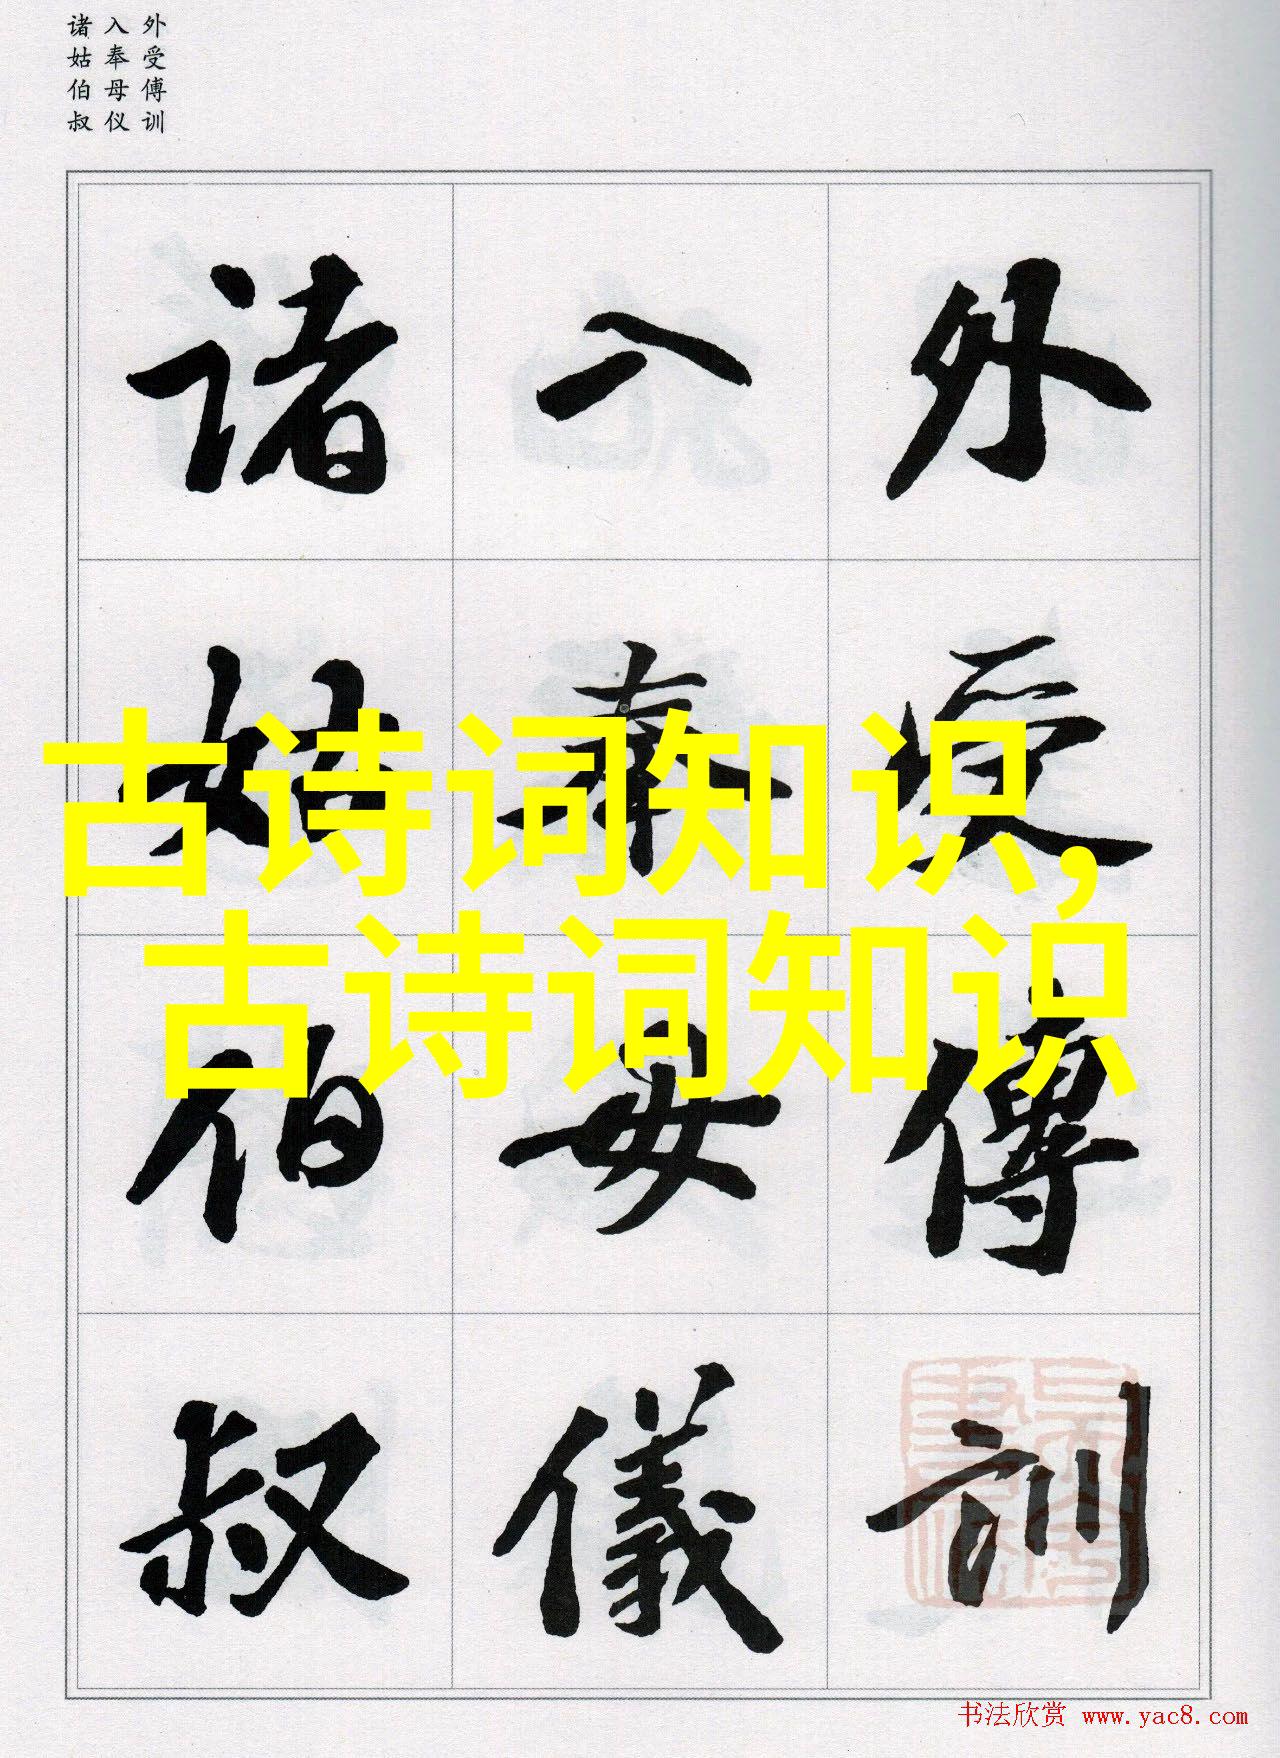 诸入外
姑奉受
伯母傅
叔仪训
诸入外
姑奉受
伯母傅
叔儀訓
古诗词知识,
古诗词知识
书法欣赏 www.yac8.com